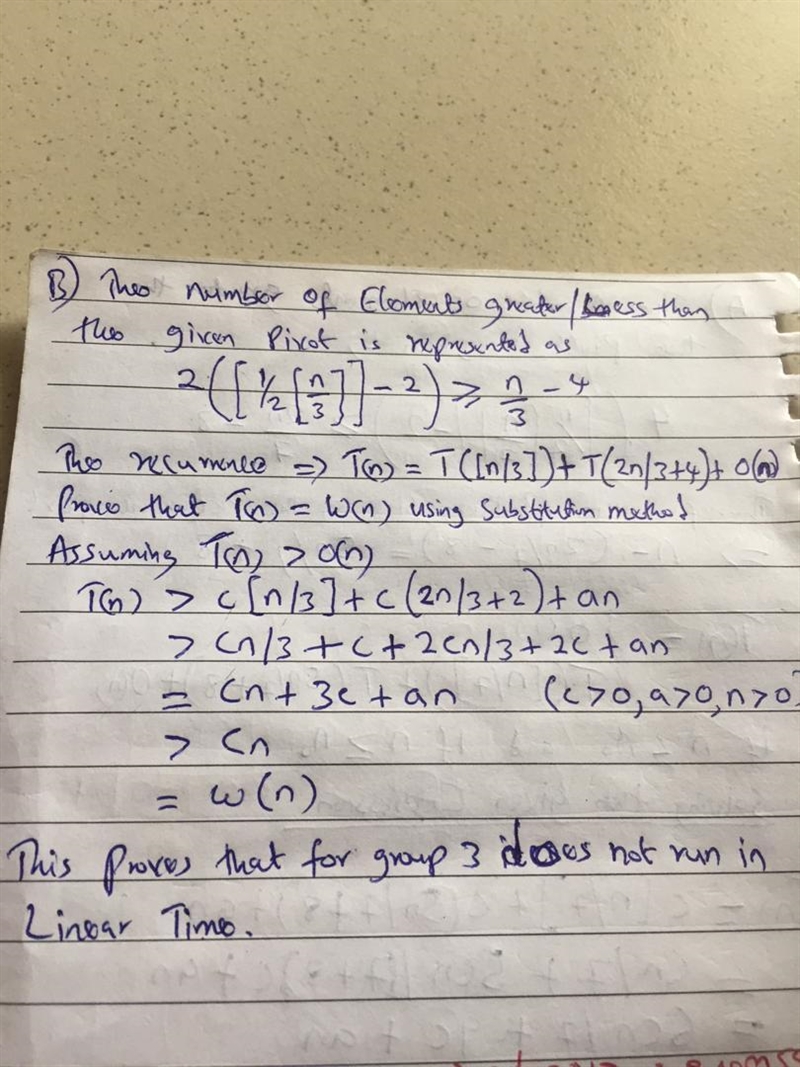 B) The number of Elements greater/Less than
the given Pivot is represented as
2([1/2[n/3]] - 2) ≥ n/3 - 4
The recurrence ⇒ T(n) = T([n/3]) + T(2n/3+4) + O(n)
Prove that T(n) = ω(n) using Substitution method
Assuming T(n) > O(n)
T(n) > c[n/3] + c(2n/3+2) + an
> cn/3 + c + 2cn/3 + 2c + an
= cn + 3c + an (c>0, a>0, n>0)
> cn
= ω(n)
This proves that for group 3 does not run in
Linear Time.